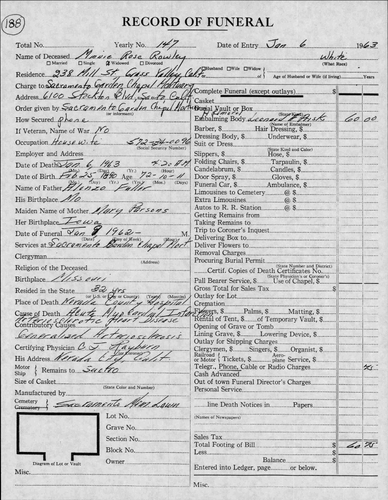 188
RECORD OF FUNERAL
Total No. Yearly No. 147 Date of Entry Jan 6 1963
Name of Deceased Minnie Rose Rowley White
Married Single Widowed Divorced Husband Wife Widow (What Race)
Residence 238 Mill St., Grass Valley, Calif Age of Husband or Wife (if living) Years
Charge to Sacramento Garden Chapel Mortuary
Address 6100 Stockton Blvd, Sacto Calif
Order given by Sacramento Garden Chapel Mortuary
How Secured phone
If Veteran, Name of War No
Occupation Housewife 572-34-0096
(Social Security Number)
Employer and Address
Date of Death Jan 6 1963
Date of Birth Feb 25 1890 Age 72-10-11
Name of Father
His Birthplace Mo
Maiden Name of Mother Mary Parsons
Her Birthplace Iowa
Date of Funeral Jan 8 1962 M.
Services at Sacramento Garden Chapel Mort
Clergyman
(Address)
Religion of the Deceased
Birthplace Missouri
Resided in the State 32 yrs
Place of Death Nevada County Hospital
Cause of Death Acute Myocardial
Contributory Causes Heart Disease
Generalized Arteriosclerosis
Certifying Physician
His Address Nevada City Calif
Motor Ship Remains to Sacto
Size of Casket
(State Color and Number)
Manufactured by
Cemetery
Crematory Sacramento Mem. Lawn
Lot No.
Grave No.
Section No.
Block No.
Owner
Diagram of Lot or Vault
Misc.
Complete Funeral (except outlays) $
Casket
Burial Vault or Box
Embalming Body 60.00
Barber, $ Hair Dressing, $
Dressing Body, $ Underwear, $
Suit or Dress
(State Kind and Color)
Slippers, $ Hose, $
Folding Chairs, $ Tarpaulin, $
Candelabrum, $ Candles, $
Door Spray, $ Gloves, $
Funeral Car, $ Ambulance, $
Limousines to Cemetery @ $
Extra Limousines @ $
Autos to R. R. Station @ $
Getting Remains from
Taking Remains to
Trip to Coroner's Inquest
Delivering Box to
Deliver Flowers to
Removal Charges
(State Number and District)
Procuring Burial Permit
Certif. Copies of Death Certificates No.
Pall Bearer Service, $ Use of Chapel, $
Gross Total for Sales Tax $
Outlay for Lot
Cremation
Flowers, $ Palms, $ Matting, $
Rental of Tent, $ of Temporary Vault, $
Opening of Grave or Tomb
Lining Grave, $ Lowering Device, $
Outlay for Shipping Charges
Clergyman, $ Singers, $ Organist, $
Tickets, $ Service, $
Telegr., Phone, Cable or Radio Charges .75
Cash Advanced
Out of town Funeral Director's Charges
Personal Services
line Death Notices in Papers
(Names of Newspapers)
Sales Tax
Total Footing of Bill $ 60.75
Less
Balance $
Entered into Ledger, page or below.
Misc.